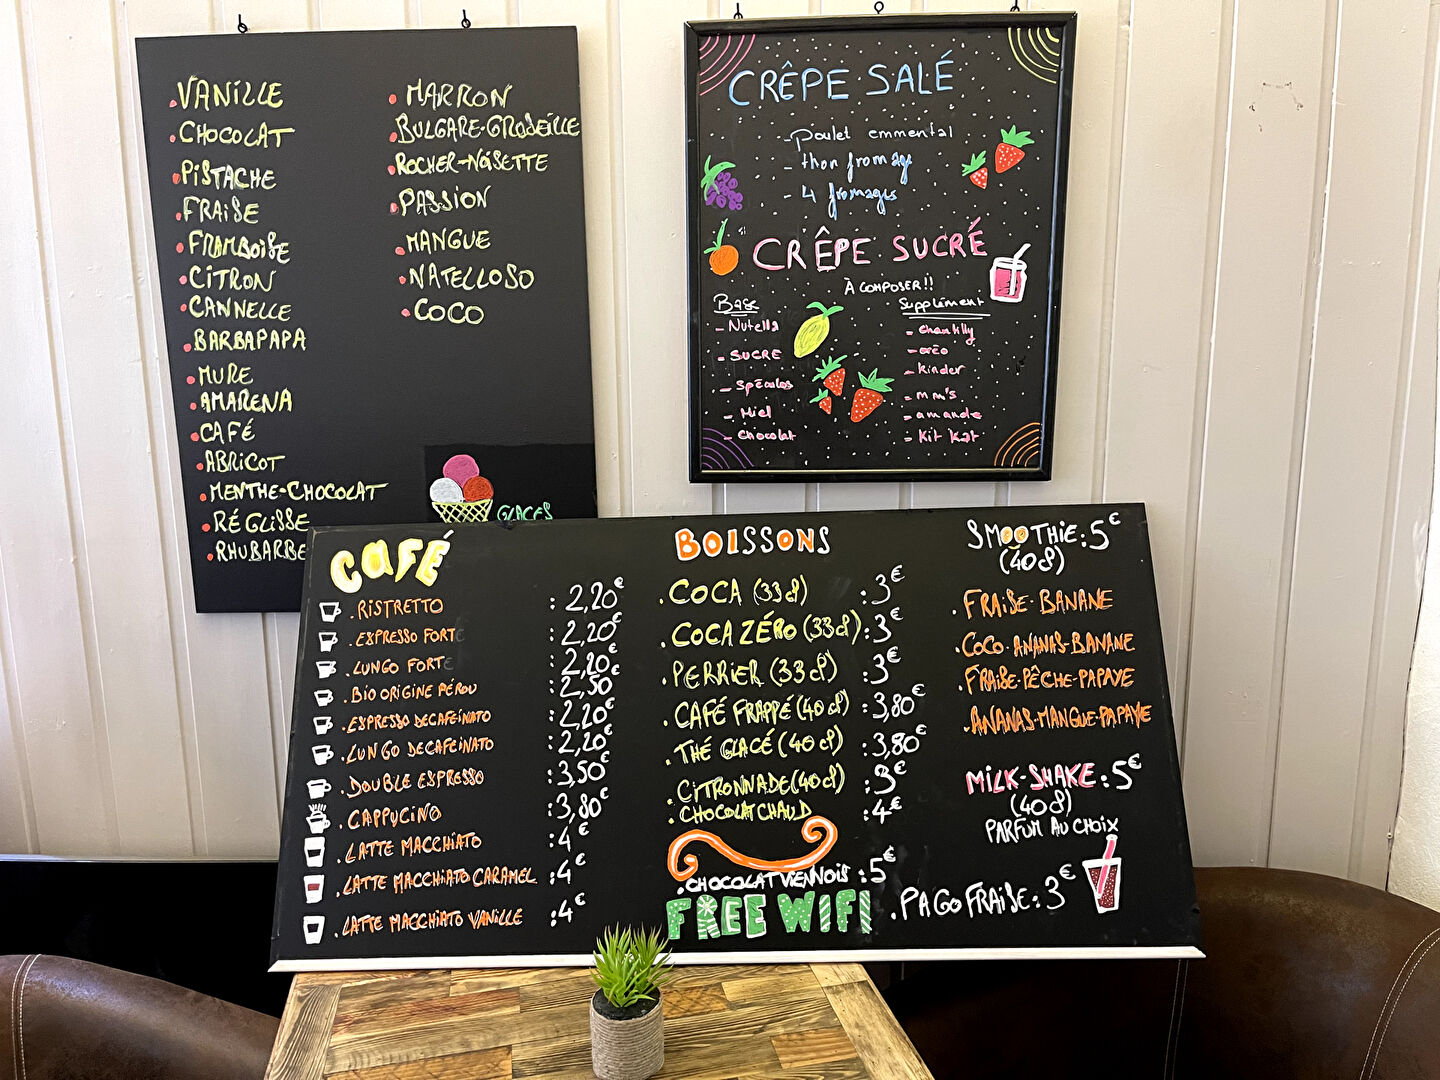 .VANILLE
.CHOCOLAT
.PISTACHE
.FRAISE
.FRAMBOISE
.CITRON
.CANNELLE
.BARBAPAPA
.MURE
.AMARENA
.CAFÉ
.ABRICOT
.MENTHE-CHOCOLAT
.RÉGLISSE
.RHUBARBE
.MARRON
.BULGARE-GROSEILLE
.ROCHER-NOISETTE
.PASSION
.MANGUE
.NATELLOSO
.COCO
GLACES
CRÊPE SALÉ
-Poulet emmental
- thon fromage
- 4 fromages
CRÊPE SUCRÉ
À COMPOSER!!
Base
- Nutella
- SUCRE
- Spéculos
- Miel
- Chocolat
Supplément
- chantilly
- oréo
- kinder
- mm's
- amande
- Kit Kat
CAFÉ
.RISTRETTO :2,20€
.ESPRESSO FORTE :2,20€
.LUNGO FORTE :2,20€
.BIO ORIGINE PÉROU :2,50€
.ESPRESSO DECAFEINATO :2,20€
.LUNGO DECAFEINATO :2,20€
.DOUBLE ESPRESSO :3,50€
.CAPPUCINO :3,80€
.LATTE MACCHIATO :4€
.LATTE MACCHIATO CARAMEL :4€
.LATTE MACCHIATO VANILLE :4€
BOISSONS
.COCA (33cl) :3€
.COCA ZÉRO (33cl):3€
.PERRIER (33cl) :3€
.CAFÉ FRAPPÉ (40cl) :3,80€
.THÉ GLACÉ (40cl) :3,80€
.CITRONNADE (40cl) :3€
.CHOCOLAT CHAUD :4€
.CHOCOLAT VIENNOIS :5€
FREE WIFI
SMOOTHIE:5€
(40cl)
.FRAISE-BANANE
.COCO-ANANAS-BANANE
.FRAISE-PÊCHE-PAPAYE
.ANANAS-MANGUE-PAPAYE
MILK-SHAKE:5€
(40cl)
PARFUM AU CHOIX
.PAGO FRAISE:3€